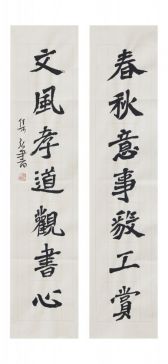 春秋意事毅工賞
文風孝道觀書心